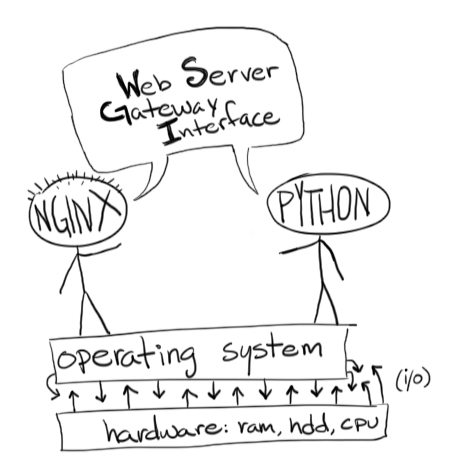 Web Server
Gateway
Interface
NGINX
PYTHON
operating system
(i/o)
hardware: ram, hdd, CPU